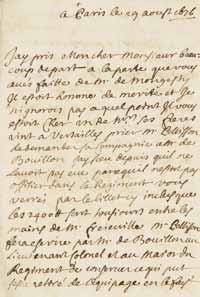 à Paris le 29 aoust 1676
J'ay pris Mon cher Monsieur beau-
coup de part a la perte que vous
avés faitte de Mr de
Il estoit homme de merite et Je
n'ignorois pas a quel point Il vous
estoit cher Un de Mrs ses freres
vint a Versailles prier Mr Pelisson
de demander sa Compagnie a Mr de
Bouillon Jay sceu depuis qu'il ne
l'avoit pas eue parce quil n'estoit pas
officier dans le Regiment vous
verres par le billet cy inclus que
les 2400# sont tousjours entre les
mains de Mr Pelisson
a escrire par Mr de Bouillon au
Lieutenant Colonel et au Major du
Regiment de conserver ce qui put
estre retiré de l'equipage en le fais